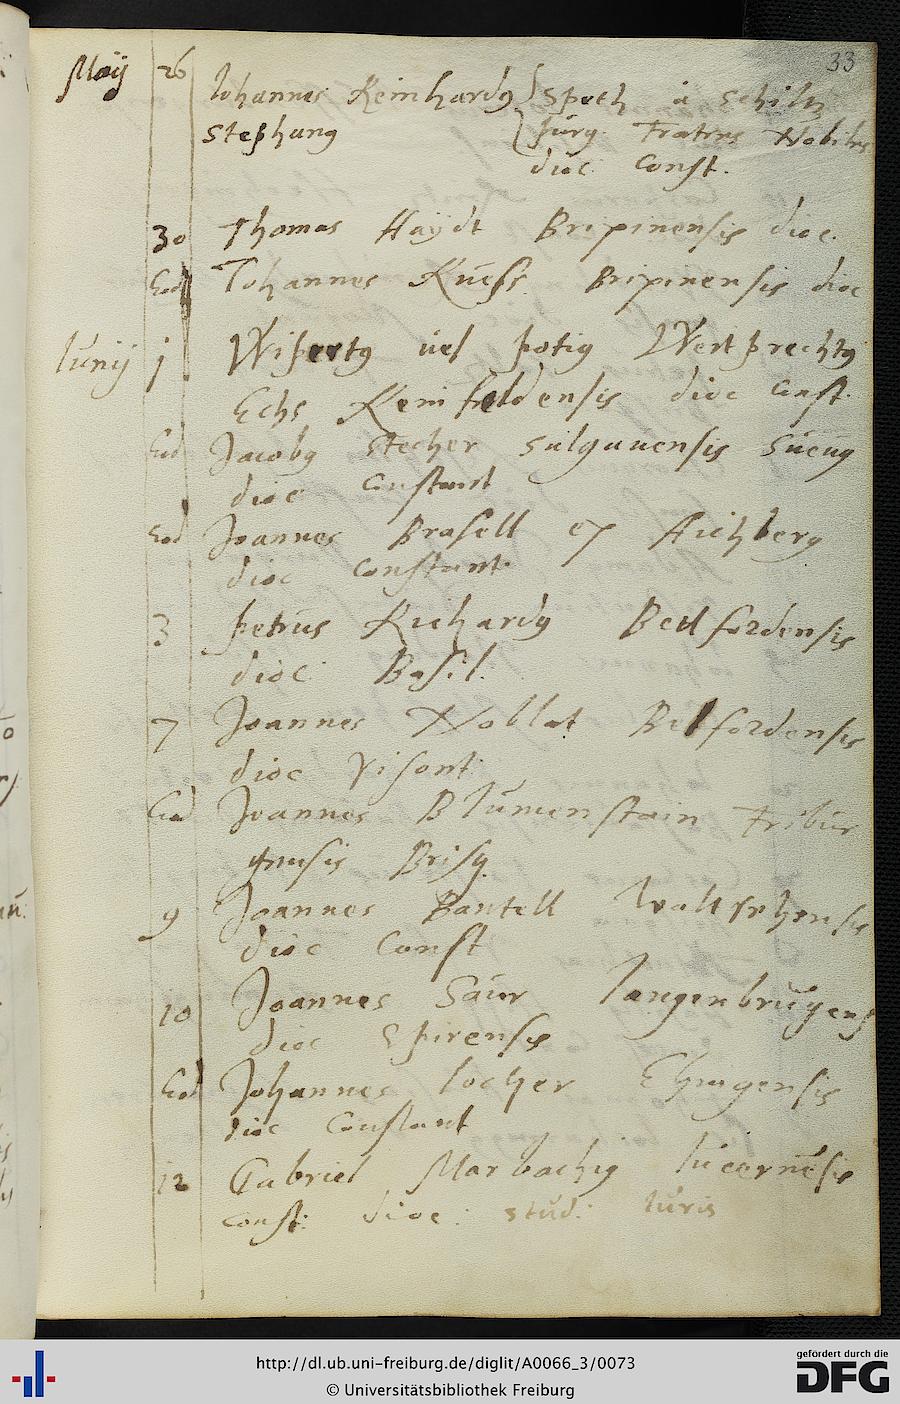 33
Maÿ 26 Iohannes Reinhardg Speth à Schiltz
Stephang purg. Fratres Nobiles
dioc Const.
30 Thomas Haÿdt Brixinensis dioc.
Eod Iohannes Kuess Brixinensis dioc
Iunij 1 Wipertg uel potig Wertprechtg
Echs Reinfeldensis dioc Const.
Eod Jacobg Stecher Sulgauensis Sueug
dioc Constant
Eod Joannes Brasell ex Aichberg
dioc Constant.
3 Petrus Richardg Bellfordensis
dioc. Basil.
7 Joannes Noblat Belfordensis
dioc Visont.
Eod Joannes Blumenstain Fribur
gensis Brisg.
9 Joannes Bantell
dioc Const
10 Joannes Saur Langenbrugens
dioc Spirensis
Eod Johannes Locher Ehingensis
dioc Constant
12 Gabriel Marbachig Lucernesis
Const: dioc: stud: Iuris
http://dl.ub.uni-freiburg.de/diglit/A0066_3/0073
© Universitätsbibliothek Freiburg
gefördert durch die
DFG